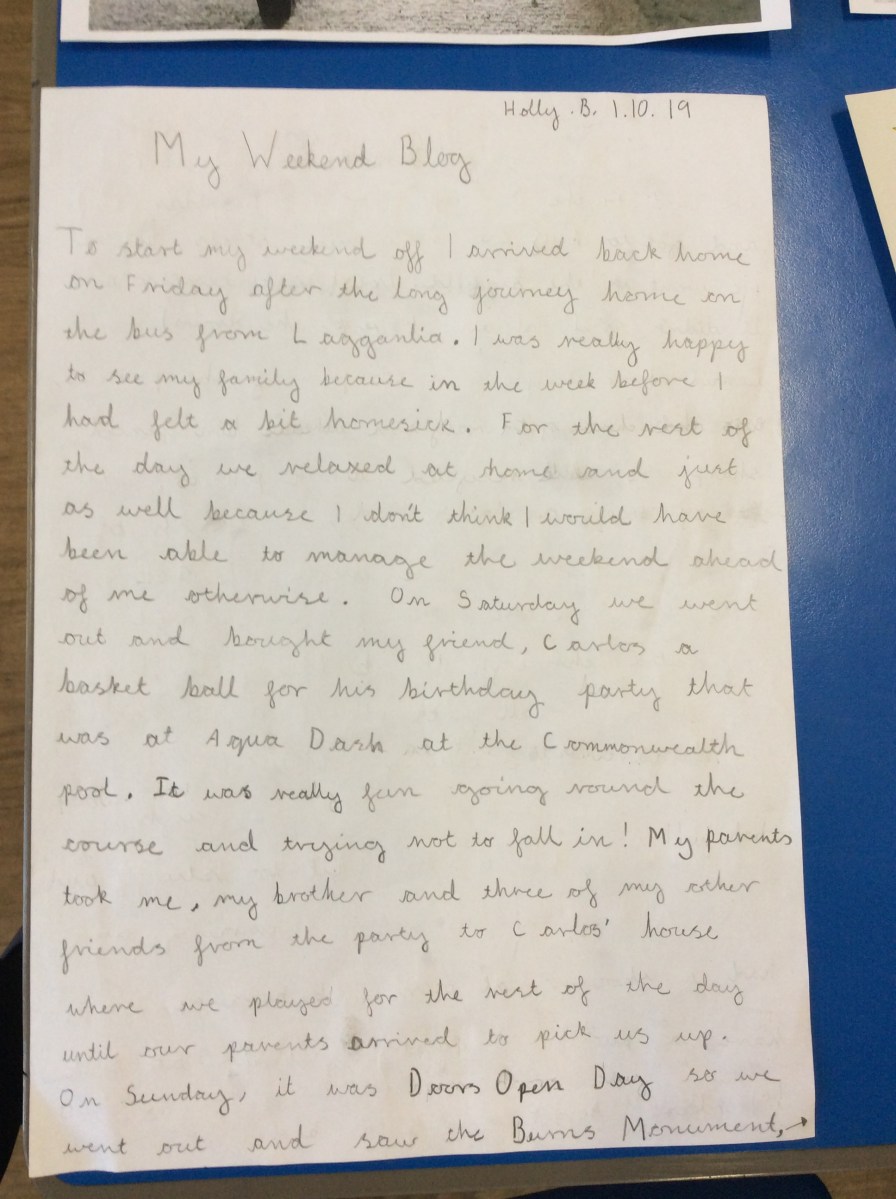 Holly . B. 1.10. 19
My Weekend Blog
To start my weekend off I arrived back home
on Friday after the long journey home on
the bus from Lagganlia. I was really happy
to see my family because in the week before I
had felt a bit homesick. For the rest of
the day we relaxed at home and just
as well because I don't think I would have
been able to manage the weekend ahead
of me otherwise. On Saturday we went
out and bought my friend, Carlos a
basket ball for his birthday party that
was at Aqua Dash at the Commonwealth
pool. It was really fun going round the
course and trying not to fall in! My parents
took me, my brother and three of my other
friends from the party to Carlos' house
where we played for the rest of the day
until our parents arrived to pick us up.
On Sunday, it was Doors Open Day so we
went out and saw the Burns Monument,→